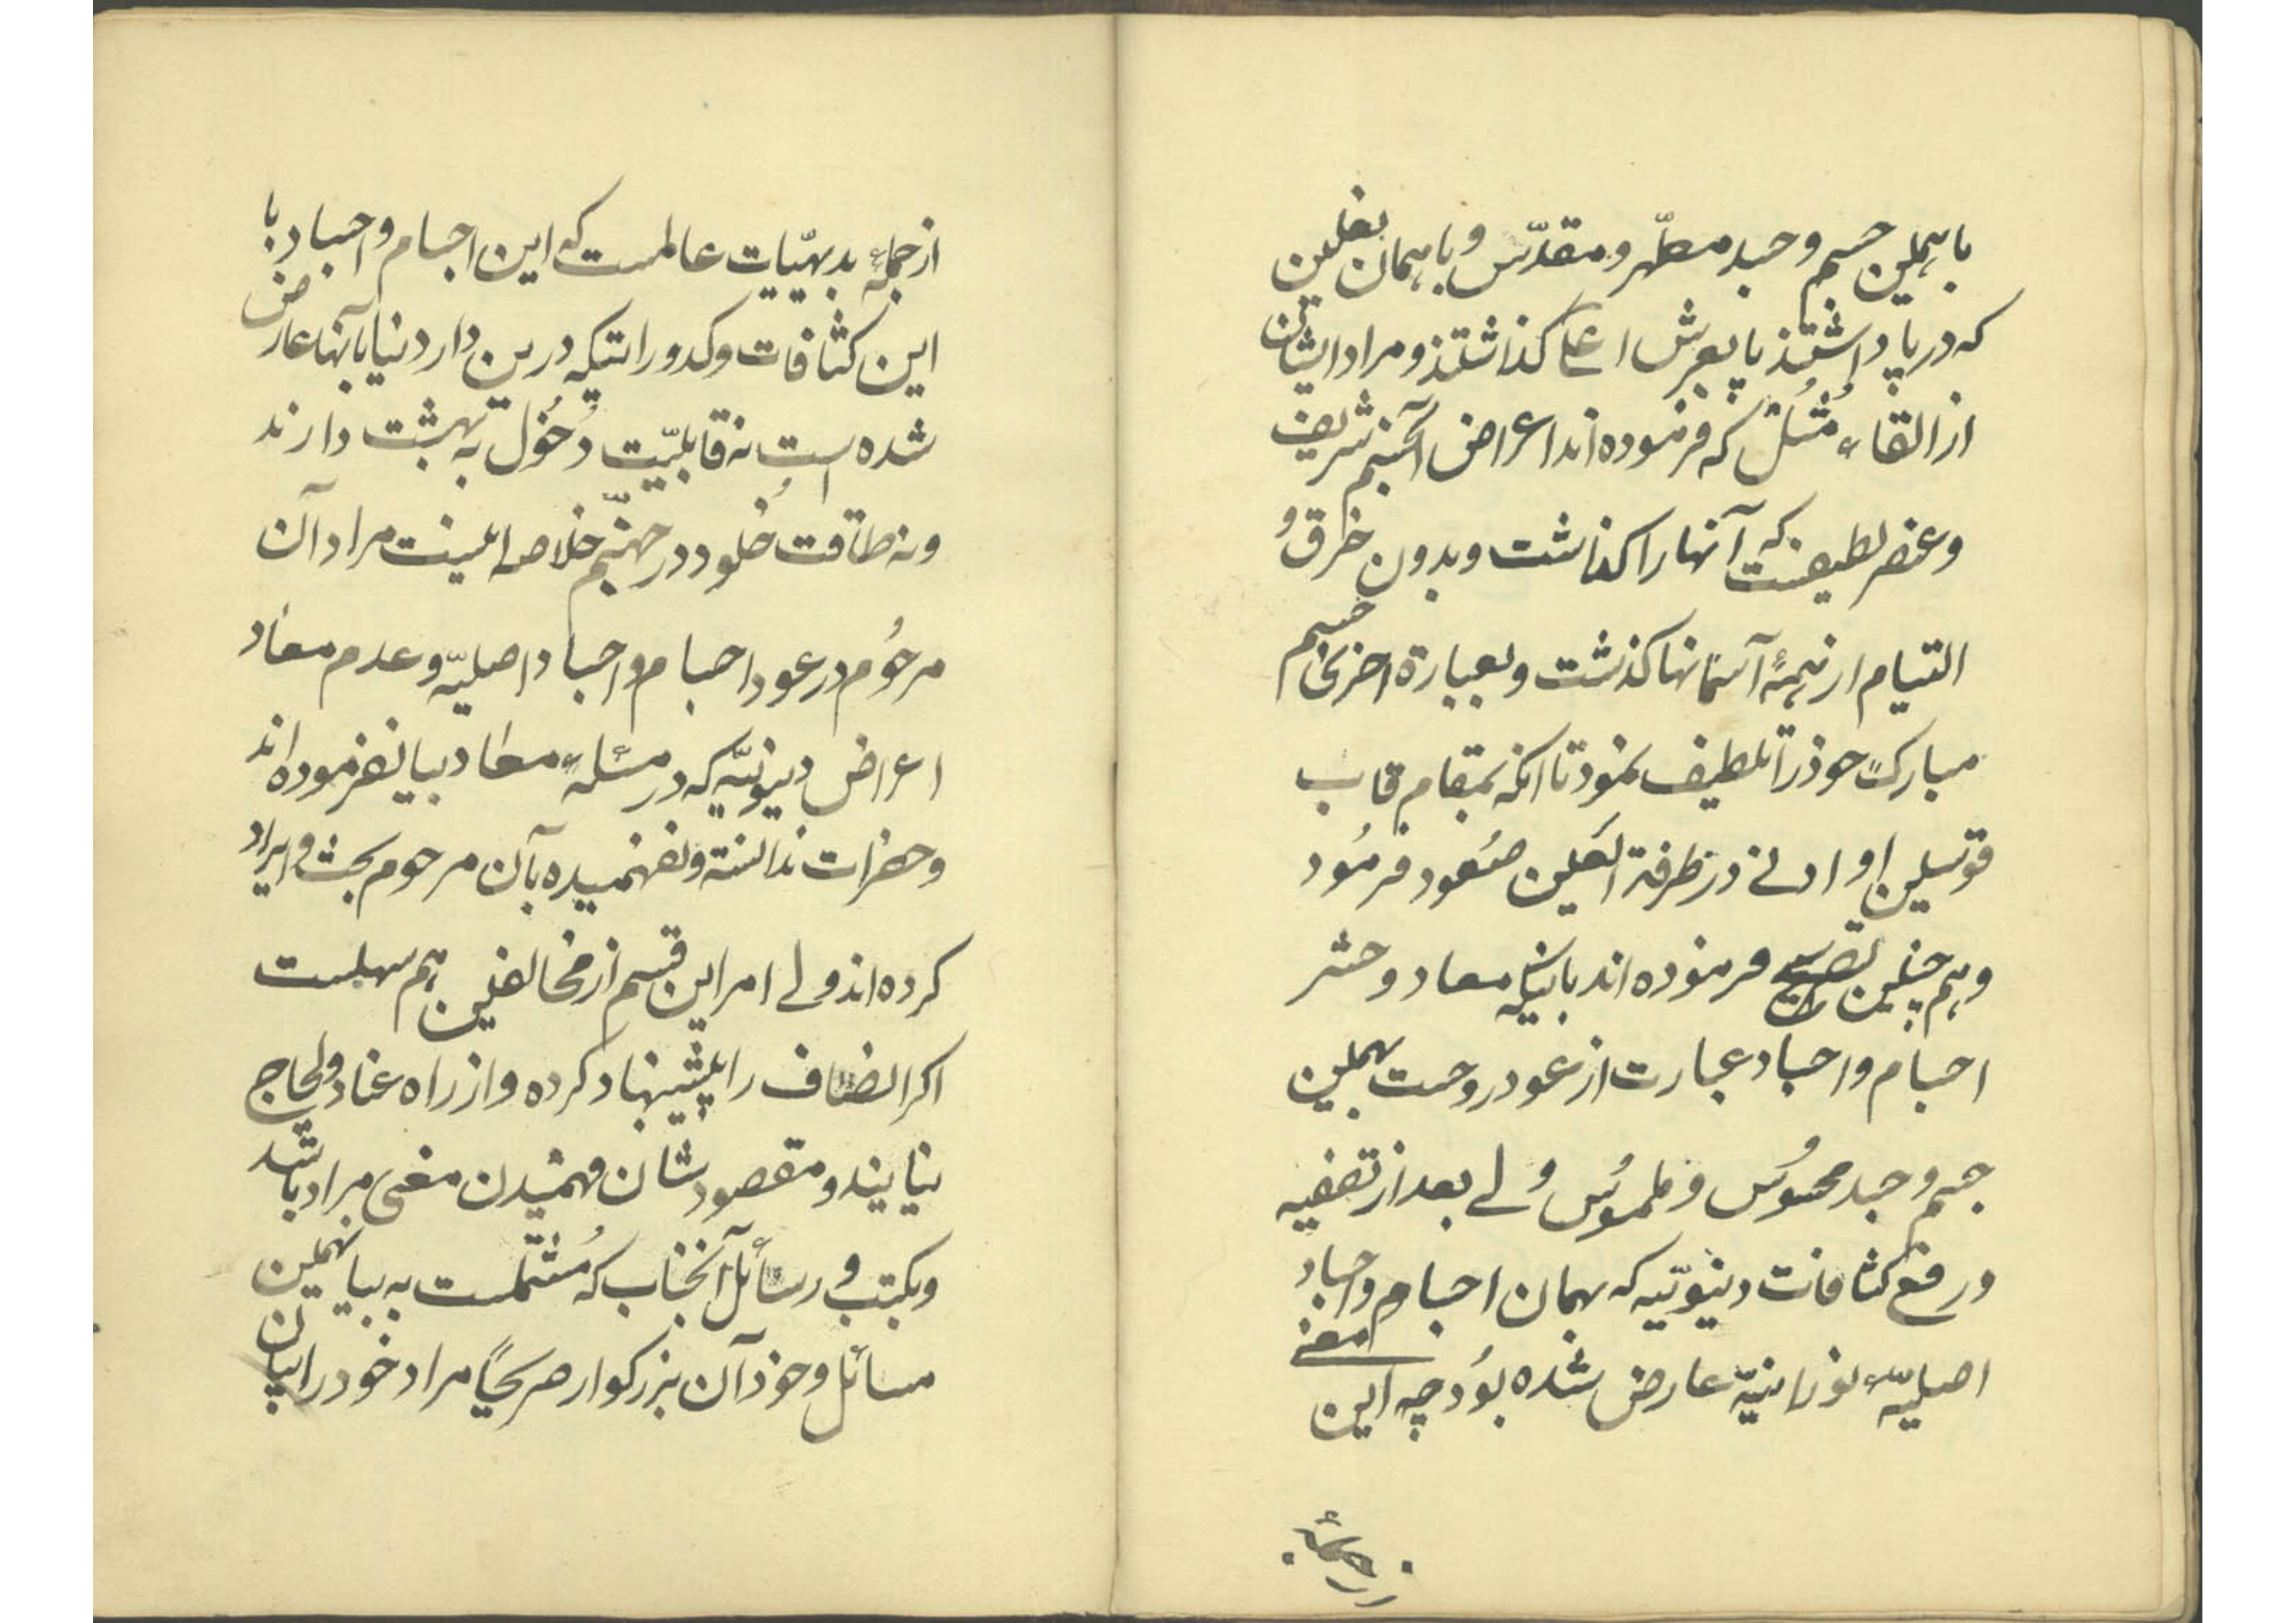 باهمین جسم و جسد مطهّر و مقدّس و باهمان نعلین
که در پا داشتند پا بعرش اعلی کذاشتند و مراد ایشان
از القاء مُثُل که فرموده اند اعراض آنجسم شریف
و عنصر لطیفست که آنها را کذاشت و بدون خرق و
التیام از همهٔ آسمانها کذشت و بعبارة اخری جسم
مبارک خود را تلطیف نمود تا انکه بمقام قاب
قوسین او ادنی در طرفة العین صُعود فرمُود
و هم چنین تصریح فرموده اند باینکه معاد و حشر
اجسام و اجساد عبارت از عود روحست بهمین
جسم و جسد محسُوس و ملمُوس ولی بعد از تصفیه
و رفع کثافات دینویّیه که بهمان اجسام و اجساد
اصلیّهٔ نورانیّه عارض شده بوُد چه این معنی
از جملهٔ
از جملهٔ بدیهیّات عالمست که این اجسام و اجساد با
این کثافات و کدوراتیکه درین دار دنیا بآنها عارض
شده است نه قابلیّت دُخُول به بهشت دارند
و نه طاقت خُلود در جهنّم خلاصه اینست مراد آن
مرحُوم در عود اجسام و اجساد اصلیّه و عدم معاد
اعراض دنیویّه که در مسئلهٔ معاد بیان فرموده اند
و حضرات ندانسته و نفهمیده بآن مرحوم بحث و ایراد
کرده اند ولی امر این قسم از مخالفین هم سهلست
اکر انصاف را پیشنهاد کرده و از راه عناد و لجاج
نیایند و مقصود شان فهمیدن معنی مراد باشد
و بکتب و رسائل آنجناب که مُشتملست به بیان همین
مسائل و خود آن بزرکوار صریحاً مراد خود را بیان